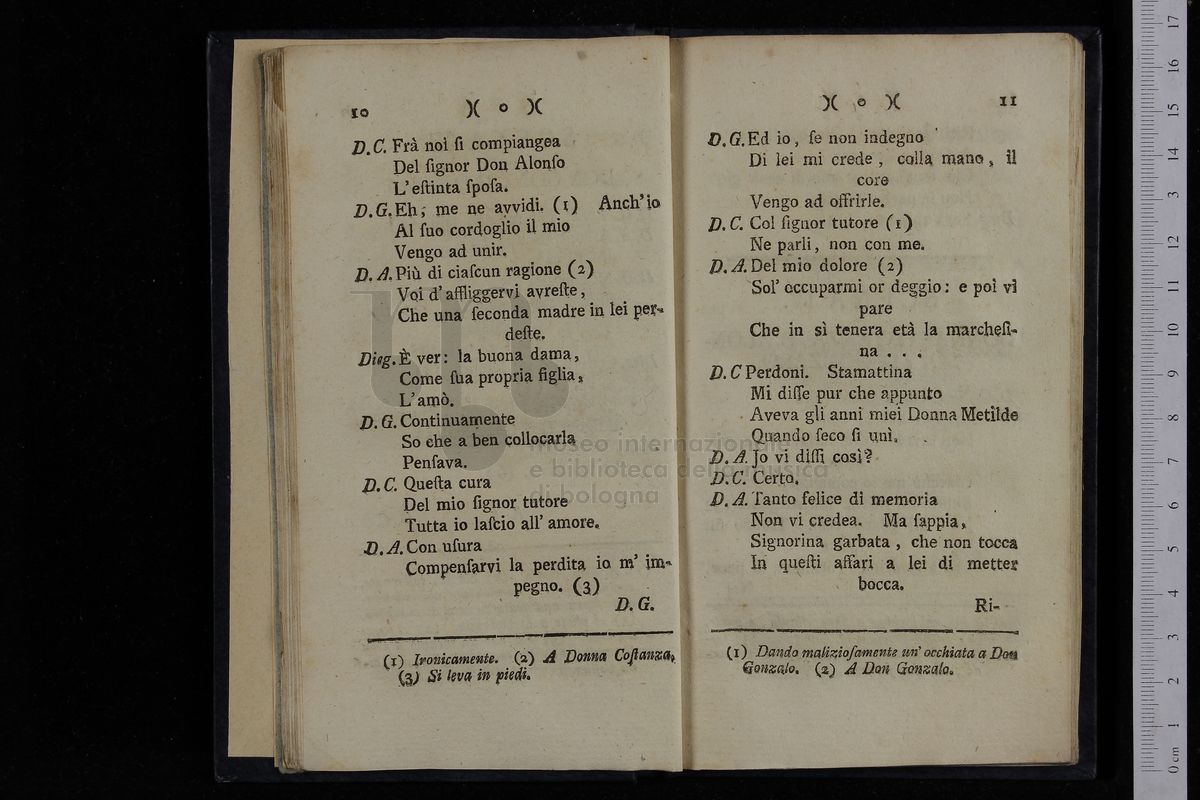 10 )( o )(
D. C. Frà noi ſi compiangea
Del ſignor Don Alonſo
L' eſtinta ſpoſa.
D. G. Eh, me ne avvidi. (1) Anch' io
Al ſuo cordoglio il mio
Vengo ad unir.
D. A. Più di ciaſcun ragione (2)
Voi d' affliggervi avreſte,
Che una ſeconda madre in lei per-
deſte.
Dieg. È ver: la buona dama,
Come ſua propria figlia,
L' amò.
D. G. Continuamente
So che a ben collocarla
Penſava.
D. C. Queſta cura
Del mio ſignor tutore
Tutta io laſcio all' amore.
D. A. Con uſura
Compenſarvi la perdita io m' im-
pegno. (3)
D. G.
(1) Ironicamente. (2) A Donna Coſtanza.
(3) Si leva in piedi.
)( o )( 11
D. G. Ed io, ſe non indegno
Di lei mi crede, colla mano, il
core
Vengo ad offrirle.
D. C. Col ſignor tutore (1)
Ne parli, non con me.
D. A. Del mio dolore (2)
Sol' occuparmi or deggio: e poi vi
pare
Che in sì tenera età la marcheſi-
na . . .
D. C Perdoni. Stamattina
Mi diſſe pur che appunto
Aveva gli anni miei Donna Metilde
Quando ſeco ſi unì.
D. A. Jo vi diſſi così?
D. C. Certo.
D. A. Tanto felice di memoria
Non vi credea. Ma ſappia,
Signorina garbata, che non tocca
In queſti affari a lei di metter
bocca.
Ri-
(1) Dando malizioſamente un' occhiata a Don
Gonzalo. (2) A Don Gonzalo.
museo internazionale
e biblioteca della musica
di bologna
0 cm 1 2 3 4 5 6 7 8 9 10 11 12 13 14 15 16 17